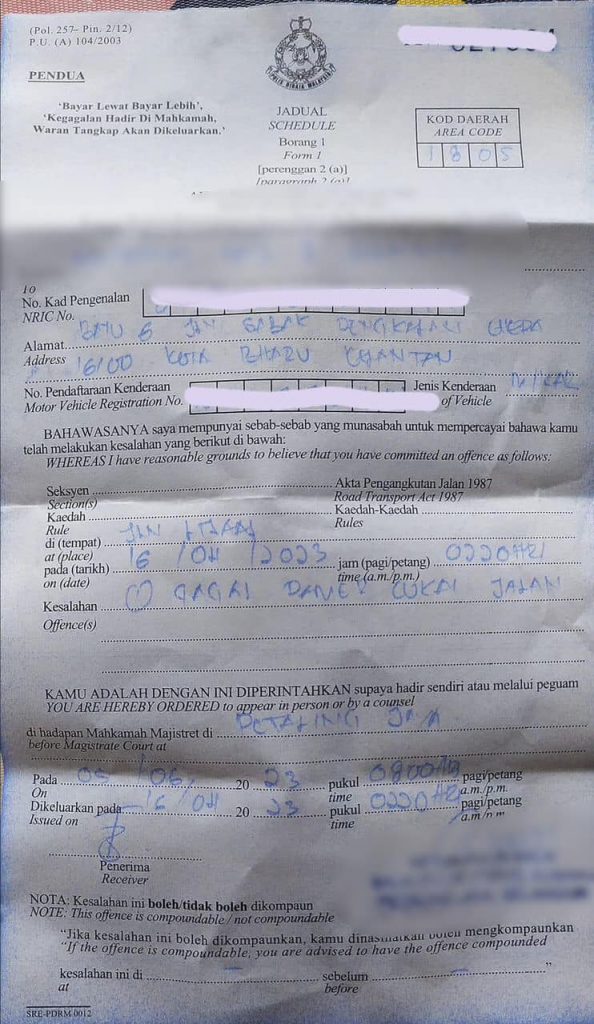 (Pol. 257– Pin. 2/12)
P.U. (A) 104/2003
PENDUA
'Bayar Lewat Bayar Lebih',
'Kegagalan Hadir Di Mahkamah,
Waran Tangkap Akan Dikeluarkan.'
JADUAL
SCHEDULE
Borang 1
Form 1
[perenggan 2 (a)]
[paragraph 2 (a)]
KOD DAERAH
AREA CODE
1805
To
No. Kad Pengenalan
NRIC No.
Alamat BATU 6 JLN SABAK PENGKALAN CHEPA
Address 16100 KOTA BHARU KELANTAN
No. Pendaftaraan Kenderaan Jenis Kenderaan
Motor Vehicle Registration No. of Vehicle M/KAR
BAHAWASANYA saya mempunyai sebab-sebab yang munasabah untuk mempercayai bahawa kamu
telah melakukan kesalahan yang berikut di bawah:
WHEREAS I have reasonable grounds to believe that you have committed an offence as follows:
Seksyen Akta Pengangkutan Jalan 1987
Section(s) Road Transport Act 1987
Kaedah Kaedah-Kaedah
Rule Rules
di (tempat) JLN
at (place)
pada (tarikh) 16/04/2023 jam (pagi/petang) 0220HRS
on (date) time (a.m./p.m.)
Kesalahan GAGAL CUKAI JALAN
Offence(s)
KAMU ADALAH DENGAN INI DIPERINTAHKAN supaya hadir sendiri atau melalui peguam
YOU ARE HEREBY ORDERED to appear in person or by a counsel
di hadapan Mahkamah Majistret di PETALING JAYA
before Magistrate Court at
Pada 05/06, 20 23 pukul 0800HRS pagi/petang
On time a.m./p.m.
Dikeluarkan pada 16/04 20 23 pukul 0220HRS pagi/petang
Issued on time a.m/p.m
Penerima
Receiver
NOTA: Kesalahan ini boleh/tidak boleh dikompaun
NOTE: This offence is compoundable / not compoundable
"Jika kesalahan ini boleh dikompaunkan, kamu dinasihatkan boleh mengkompaunkan
"If the offence is compoundable, you are advised to have the offence compounded
kesalahan ini di – sebelum – "
at before
SRE-PDRM 0012